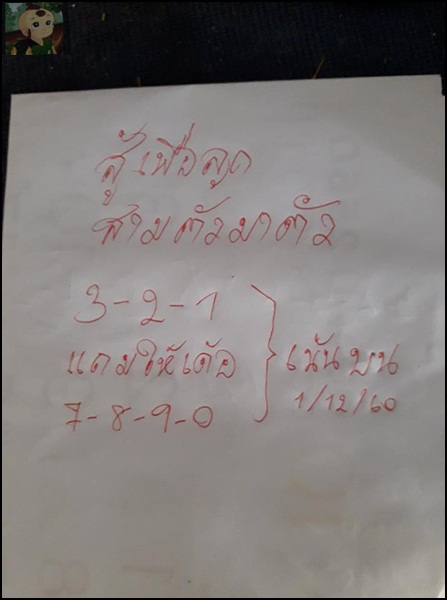 สู้เพื่อลูก
สามตัวมาตัว
3-2-1
แถมให้เด้อ
7-8-9-0
เน้นบน
1/12/60